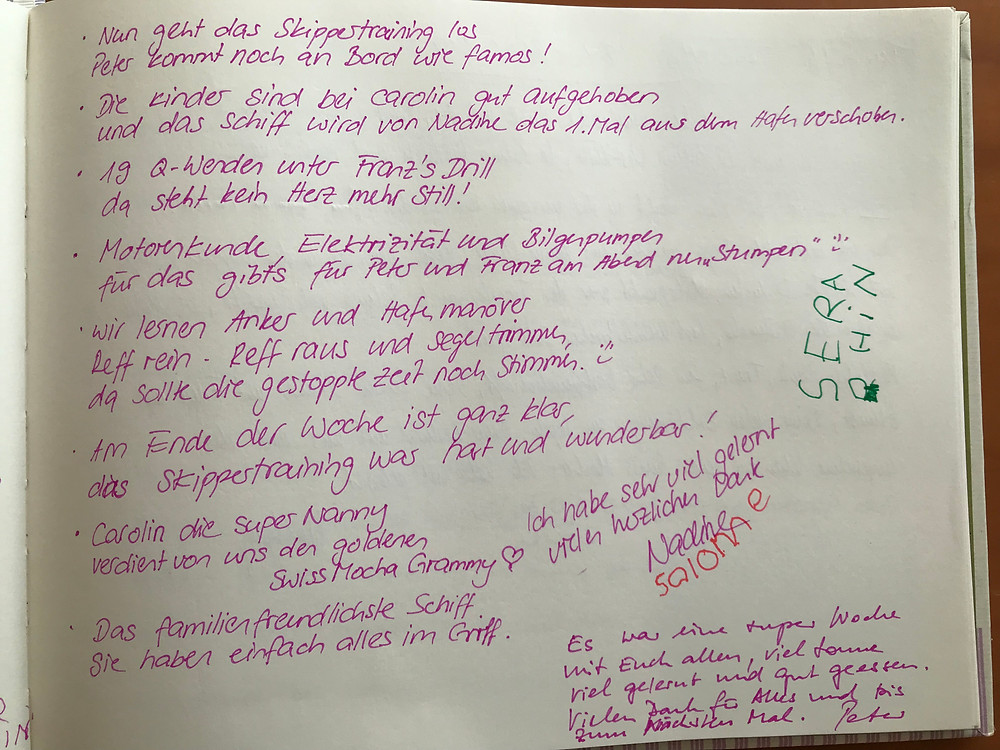 · Nun geht das Skippertraining los
Peter kommt noch an Bord wie famos!
· Die Kinder sind bei Carolin gut aufgehoben
und das Schiff wird von Nadine das 1. Mal aus dem Hafen verschoben.
· 19 Q-Wenden unter Franz's Drill
da steht kein Herz mehr Still!
· Motorenkunde, Elektrizität und Bilgenpumpen
für das gibts für Peter und Franz am Abend nen "Stumpen" :)
· wir lernen Anker und Hafenmanöver
Reff rein - Reff raus und segel trimmen,
da sollte die gestoppte Zeit noch Stimmen. :)
· Am Ende der Woche ist ganz klar,
das Skippertraining war hart und wunderbar!
· Carolin die super Nanny
verdient von uns den goldenen
Swiss Mocha Grammy ♡
· Das familienfreundlichste Schiff.
Sie haben einfach alles im Griff.
Ich habe sehr viel gelernt
vielen herzlichen Dank
Nadine
SALOMAE
SERA
PHiN
Es war eine super Woche
mit Euch allen, viel Sonne
viel gelernt und gut geessen.
Vielen Dank für Alles und bis
zum Nächsten Mal. Peter
iN